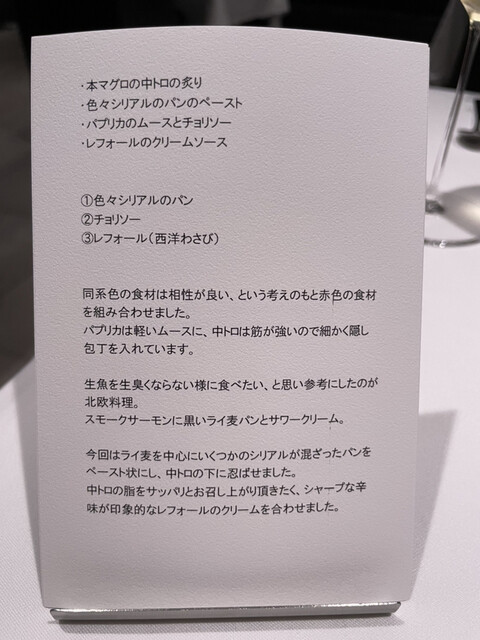 ・本マグロの中トロの炙り
・色々シリアルのパンのペースト
・パプリカのムースとチョリソー
・レフォールのクリームソース
①色々シリアルのパン
②チョリソー
③レフォール（西洋わさび）
同系色の食材は相性が良い、という考えのもと赤色の食材
を組み合わせました。
パプリカは軽いムースに、中トロは筋が強いので細かく隠し
包丁を入れています。
生魚を生臭くならない様に食べたい、と思い参考にしたのが
北欧料理。
スモークサーモンに黒いライ麦パンとサワークリーム。
今回はライ麦を中心にいくつかのシリアルが混ざったパンを
ペースト状にし、中トロの下に忍ばせました。
中トロの脂をサッパリとお召し上がり頂きたく、シャープな辛
味が印象的なレフォールのクリームを合わせました。